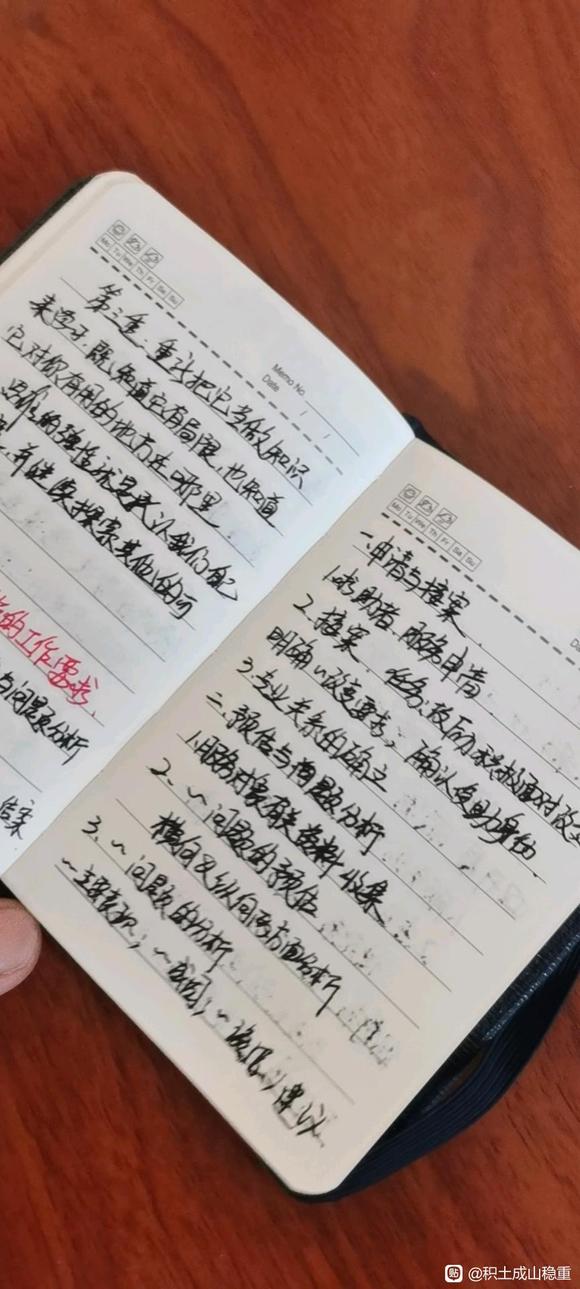 Mo Tu We Th Fr Sa Su
Memo No.
Date / /
第三重:重新把它当做知识
来学习.既知道它有局限,也知道
它对你有用的地方在哪里.
们的
并继续探索其他的可
的工作要求.
与问题分析
结案
Mo Tu We Th Fr Sa Su
一.申请与接案
1.求助者 服务申请.
2.接案 任务:反应积极面对改变
明确~改变要求;确认受助身份.
3.专业关系的确立
二.预估与问题分析
1.服务对象有关资料收集
2.~问题的预估
横向及纵向两方面分析
3.~问题的分析
~主要表现;~成因;~ 建议.
@积土成山稳重